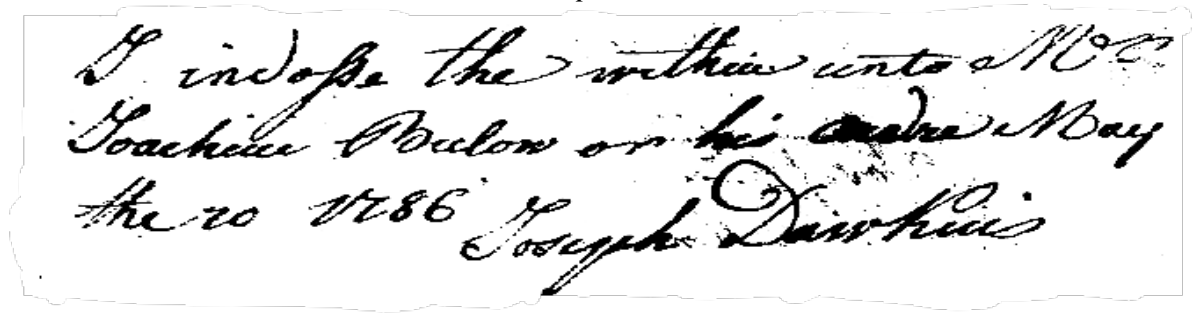 I indosse the within unto Mr
Joachim Bulow or his ordre May
the 20 1786 Joseph Dawkins